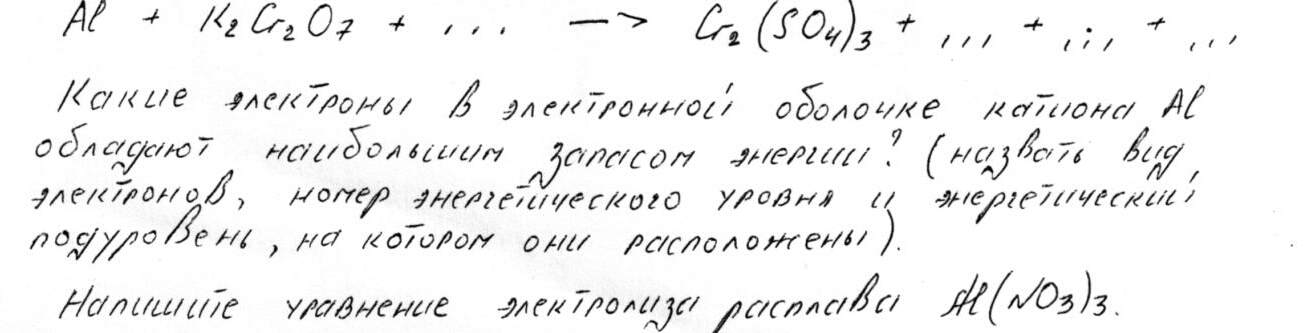 Al + K2Cr2O7 + ... —> Cr2(SO4)3 + ... + ... + ...
Какие электроны в электронной оболочке катиона Al
обладают наибольшим запасом энергии? (назвать вид
электронов, номер энергетического уровня и энергетический
подуровень, на котором они расположены).
Напишите уравнение электролиза расплава Al(NO3)3.